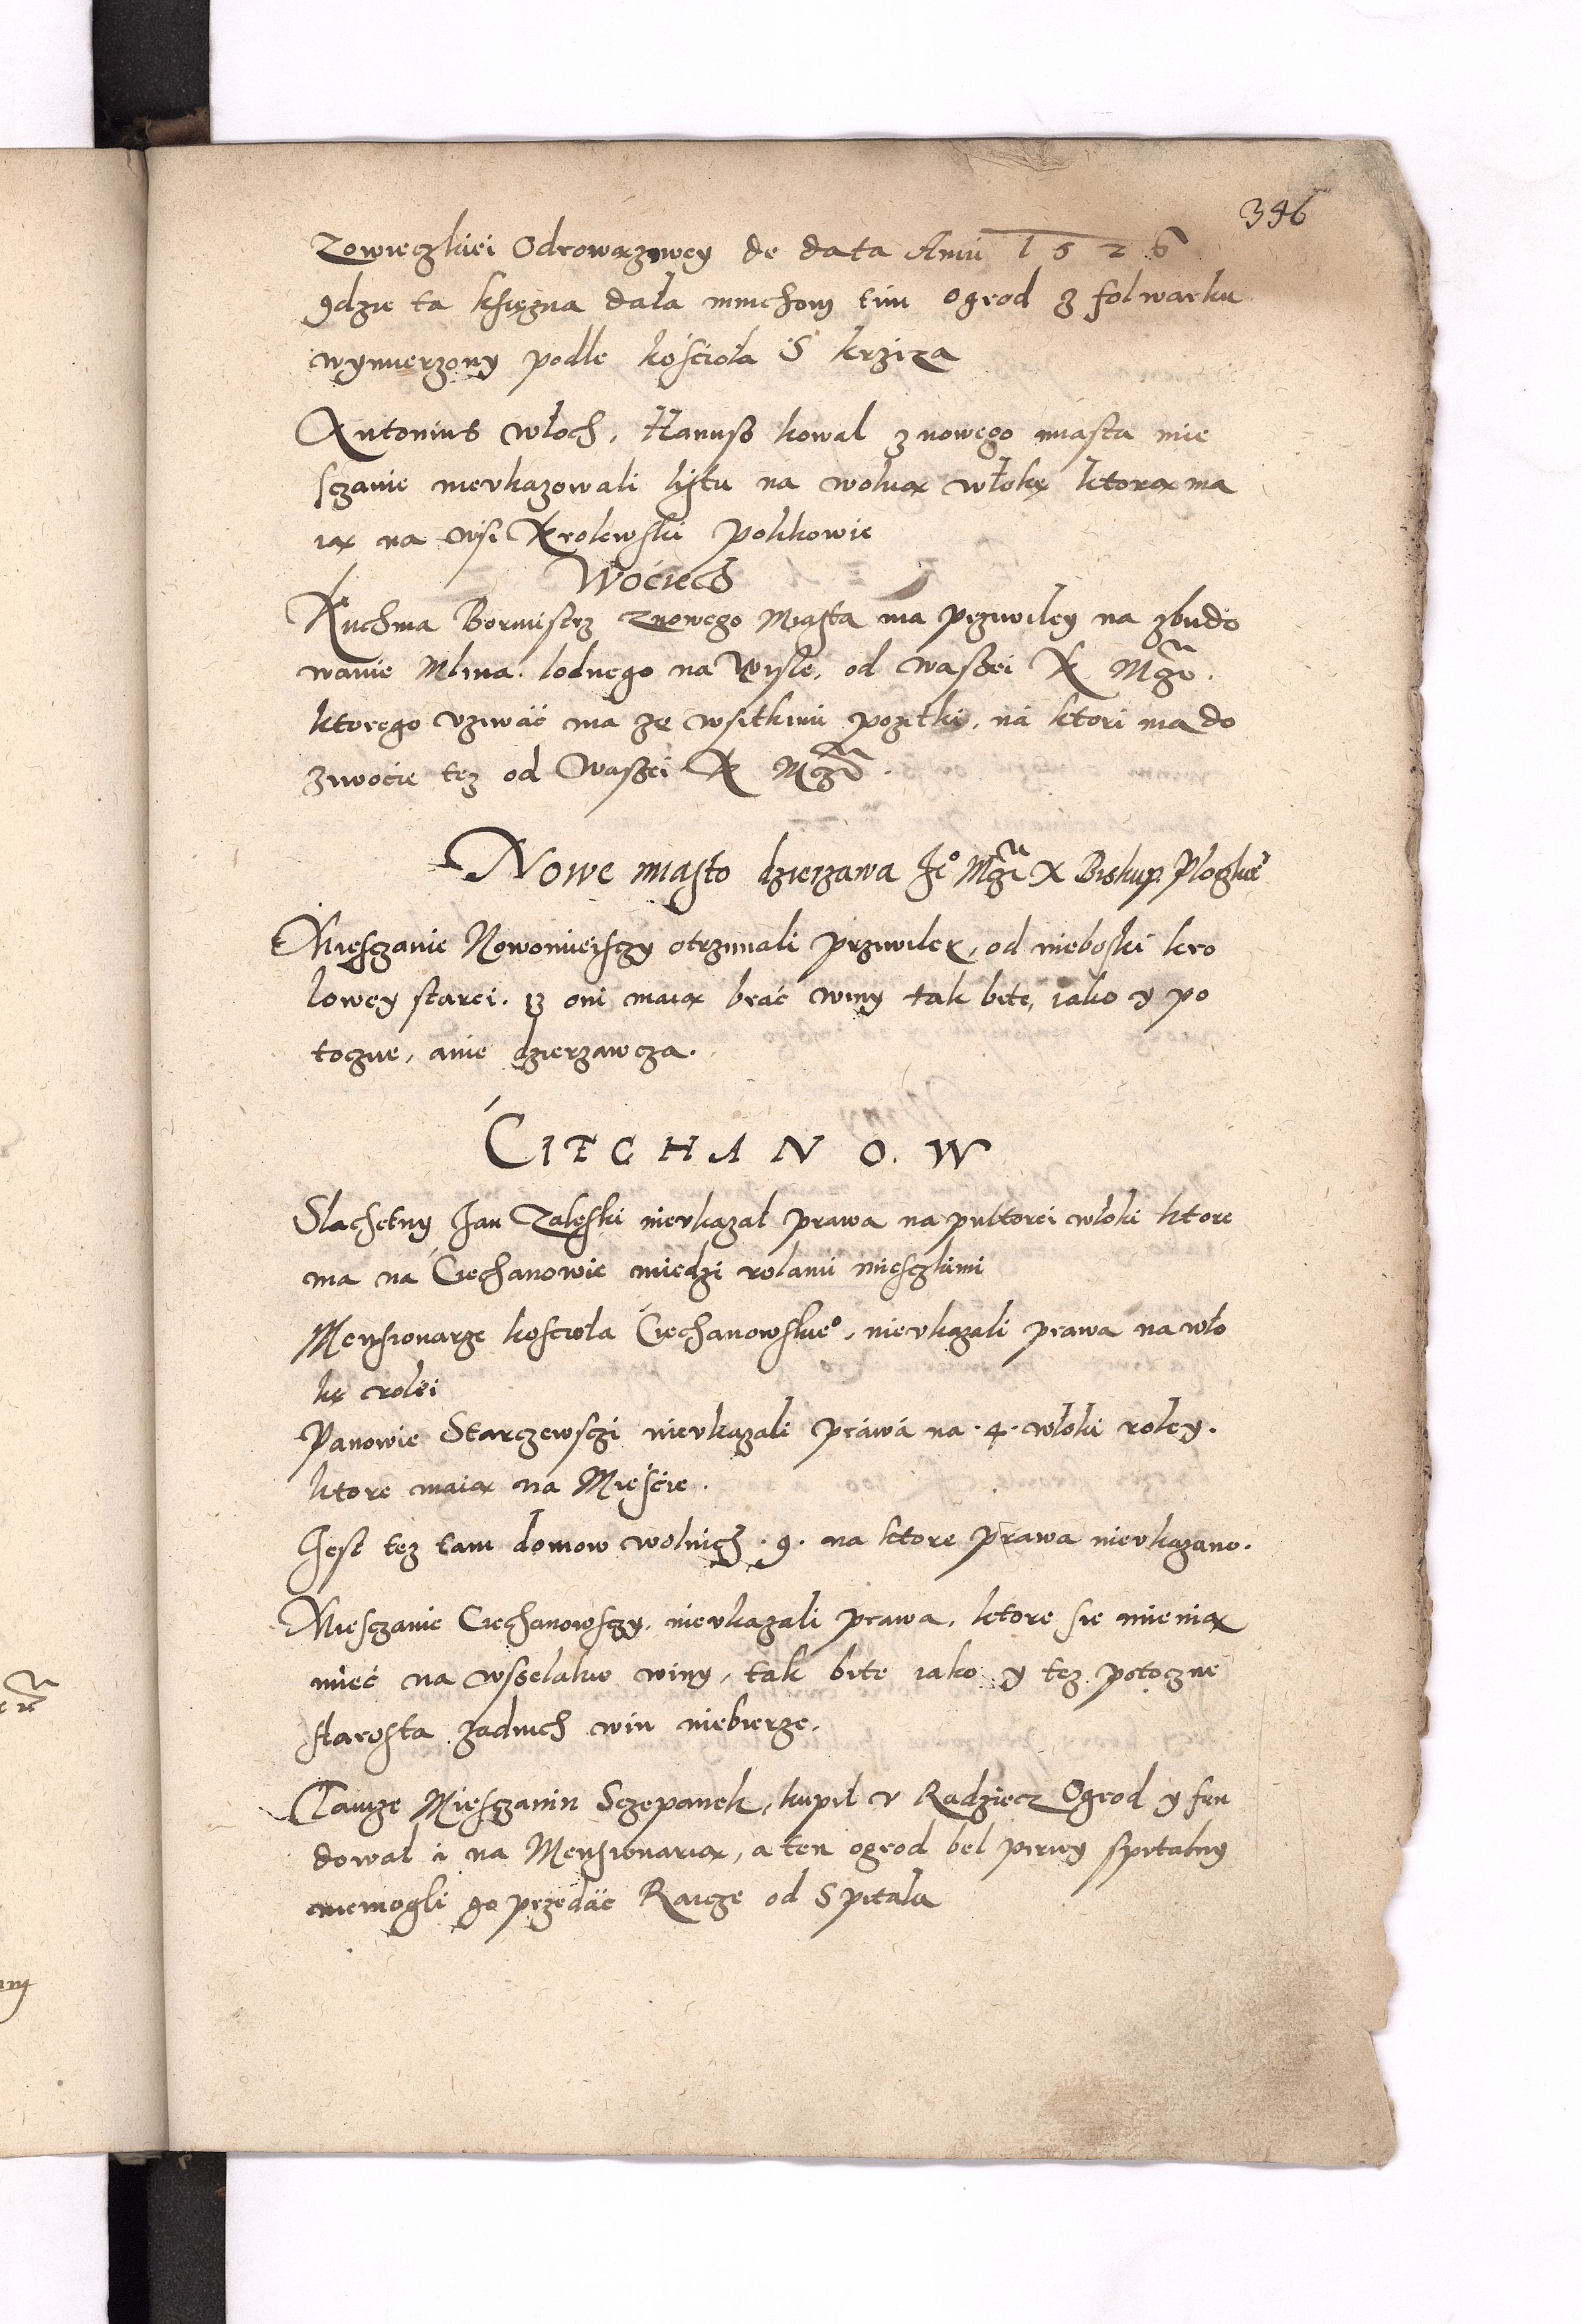 396
Zowieczkiei Odrowązowey de data Anni 1526
gdzie ta księzna dała mnichom tim ogrod z folwarku
wymierzony podle kościoła S krziza
Antonius włoch, Hanusz kowal z nowego miasta mie
sczanie nieukazowali listu na wolną włokę ktorą ma
ią na wsi Krolewski Polikowie
Wóciech
Kuchma Bormistrz Znowego Miasta ma przywiley na zbudo
wanie Mlina lodnego na Wiśle, od waszei K Mczi.
ktorego uziwać ma ze wsitkimi pozitki, ná ktori ma do
ziwocie tez od Waszei K Mczi.
Nowe miasto dzierzawa Je° Mczi X Biskup. Ploczkie°
Miesczanie Nowomieisczy otrzimali przywilei, od nieboski kro
lowey starei. iz oni maią brać winy tak bite, iako y po
toczne, anie dzierzawcza.
CIECHANO.W
Slachetny Jan Zaleski nieukazal prawa na pultorei włoki ktore
ma na Ciechanowie miedzi rolami miesczkimi
Mensionarze kościoła Ciechanowskie°, nieukazali prawa na wło
kę rolei
Panowie Starczewsczi nieukazali práwá na .4. włoki roley.
ktore maią ná Mieście.
Jest tez tam domow wolnich .9. na ktore prawa nieukazano.
Miesczanie Ciechanowsczy, nieukazali prawa, ktore sie mienią
mieć na wszelakie winy, tak bite iako y tez potoczne
starosta zadnich win niebierze.
Tamze Miesczanin Sczepanek, kupil u Radziecz Ogrod y fun
dowal i na Mensionarią, a ten ogrod bel pirwy spitalny
niemogli go przedać Raicze od Spitala